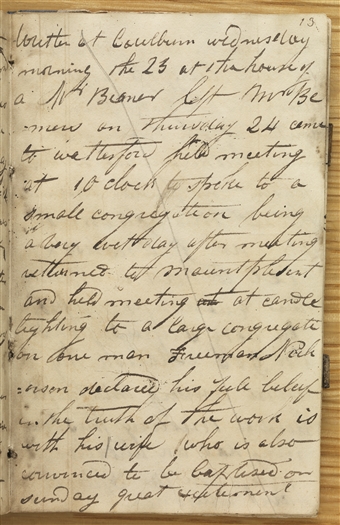 13
Writter at Coulburn wednesday
morning the 23 at the house of
a Mr Beaner left Mr Be
=ners on thursday 24 came
to wetherford held meeting
at 10 oclock to spoke to a
small congregation being
a very wet day after meeting
returned to mauntplesent
and held meeting at candle
lighting to a large congregate
on one man Freeman Nick
=erson declared his full belief
in the truth of the work is
with his wife who is also
convinced to be baptised on
sunday great excitement